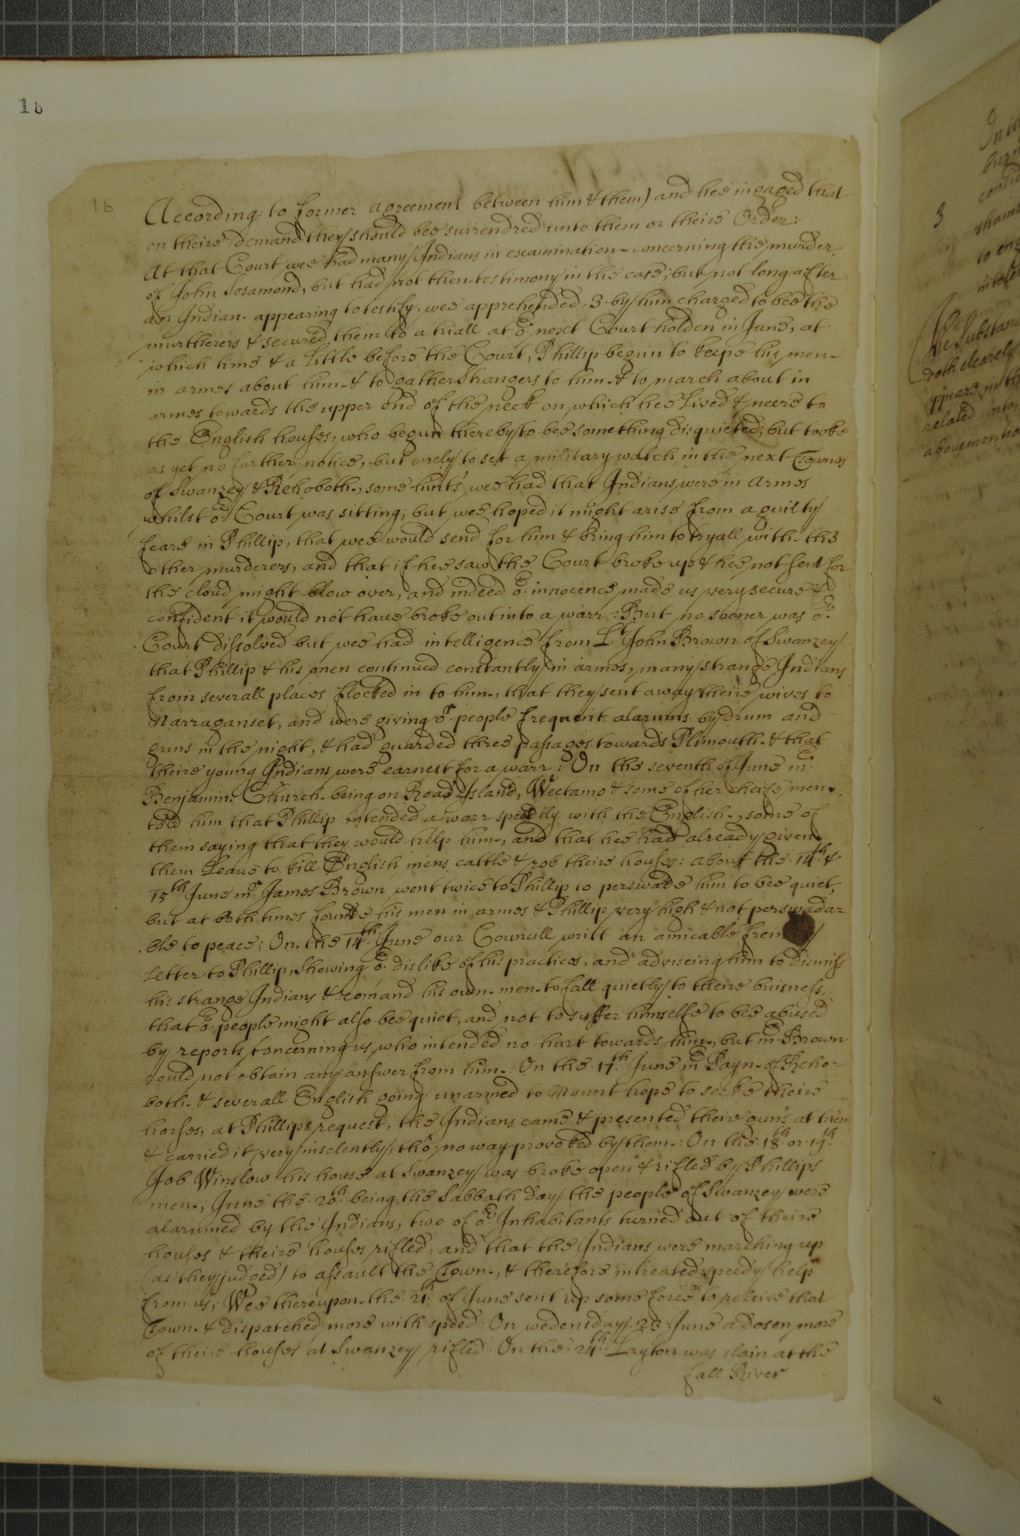 16
16
According to former agreement between him & them) and hee ingaged that
on theire demand they should bee surrendred unto them or theire Order:
At that Court wee had many Indians in examination concerning the murder
of John Sosamond, but had not then testimony in the case; but not long after
an Indian appearing to testify, wee apprehended 3 by him charged to bee the
murtherers & secured them to a triall at or next Court holden in June, at
which time & a little before the Court, Phillip begun to keepe his men
in armes about him & to gather strangers to him & to march about in
armes towards the upper end of the neck on which hee lived & neere to
the English houses, who begun thereby to bee something disquieted; but tooke
as yet no further notice, but onely to set a military watch in the next Townes
of Swanzey & Rehoboth, some hints wee had that Indians were in armes
whilst or Court was sitting, but wee hoped it might arise from a guilty
feare in Phillip, that wee would send for him & bring him to tryall with the
other murderers, and that if hee saw the Court broke up & hee not sent for
the cloud might blow over, and indeed or innocence made us very secure &
confident it would not have broke out into a warr. But no sooner was or
Court dissolved but wee had intelligence from Lt John Brown of Swanzey
that Phillip & his men continued constantly in armes, many strange Indians
from severall places flocked in to him, that they sent away theire wives to
Narraganset, and were giving or people frequent alarums by drum and
guns in the night, & had guarded three passages towards Plimouth & that
theire young Indians were earnest for a warr: On the seventh of June mr
Benjamin Church being on Road Island, Weetamo & some of her cheife men
told him that Phillip intended a warr speedily with the English, some of
them saying that they would help him, and that hee had already given
them leave to kill English mens cattle & rob theire houses: about the 14th &
15th June mr James Brown went twice to Phillip to perswade him to bee quiet,
but at both times founde his men in armes & Phillip very high & not perswadar
ble to peace: On the 14th June our Councill writt an amicable
Letter to Phillip, shewing or dislike of his practices, and adviseing him to dismiss
his strange Indians & comand his own men to fall quietly to theire buisness,
that or people might also bee quiet, and not to suffer himselfe to bee abused
by reports concerning us, who intended no hurt towards him, but mr Brown
could not obtain any answer from him. On the 17th June mr Payn of Reho-
both & severall English going unarmed to Mount hope to seeke theire
horses, at Phillips request, the Indians came & presented theire guns at them
& carried it very insolently, tho no way provoked by them: On the 18th or 19th
Job Winslow his house at Swanzey was broke open & rifled by Phillips
men, June the 20th being the Sabbath day, the people of Swanzey were
alarumed by the Indians, two of or Inhabitants turned out of theire
houses & theire houses rifled, and that the Indians were marching up
(as they judged) to assault the Town, & therefore intreated speedy help
from us, Wee thereupon the 21th of June sent up some force to releive that
Town & dispatched more with speed. On wedensday 23 June a dosen more
of theire houses at Swanzey rifled. On the 24th Layton was slain at the
fall River
3